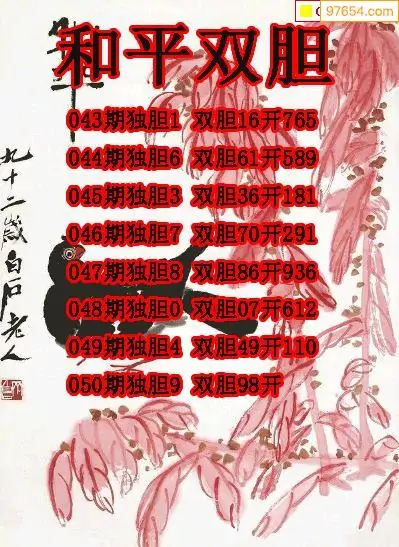 97654.com
和平双胆
043期独胆1 双胆16开765
044期独胆6 双胆61开589
045期独胆3 双胆36开181
046期独胆7 双胆70开291
047期独胆8 双胆86开936
048期独胆0 双胆07开612
049期独胆4 双胆49开110
050期独胆9 双胆98开
九十二歲白石老人